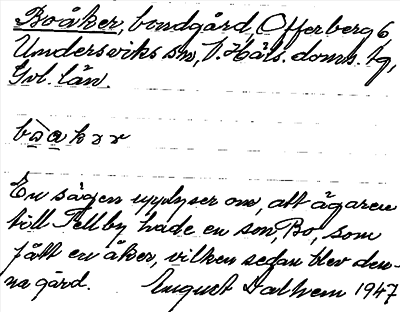 Boåker, bondgård, Offerberg 6,
Undersviks sn, V. Häls. doms. tg,
Gvl. län.
En sägen upplyser om, att ägaren
till Tellby hade en son, Bo, som
fått en åker, vilken sedan blev den-
na gård. August Dalhem 1947